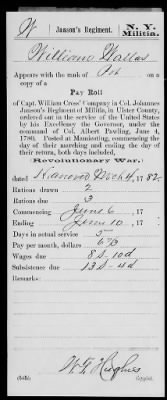 W | Janson's Regiment. | N. Y. Militia.
William Wallas
Appears with the rank of Pvt on a
copy of a
Pay Roll
of Capt. William Cross' Company in Col. Johannes
Janson's Regiment of Militia, in Ulster County,
ordered out in the service of the United States
by his Excellency the Governor, under the
command of Col. Albert Pawling, June 4,
1780. Posted at Mamakating, commencing the
day of their marching and ending the day of
their return, both days included,
Revolutionary War.
dated Hanover Dec 4, 1782.
Rations drawn 2
Rations due 3
Commencing June 6, 17
Ending June 10, 17
Days in actual service 5
Pay per month, dollars 6⅔
Wages due 8s. 10d
Subsistence due 13s-4d
Remarks:
Hughes
Copyist.